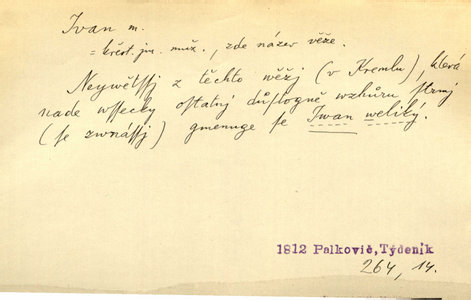 Ivan m.
= křest. jm. muž., zde název věže.
Neywětssj z těchto wěžj (v Kremlu), která
nade wssecky ostatnj důstogně wzhůru strmj
(se zwnássj) gmenuge se Iwan weliký.
1812 Palkovič, Týdeník
264, 14.